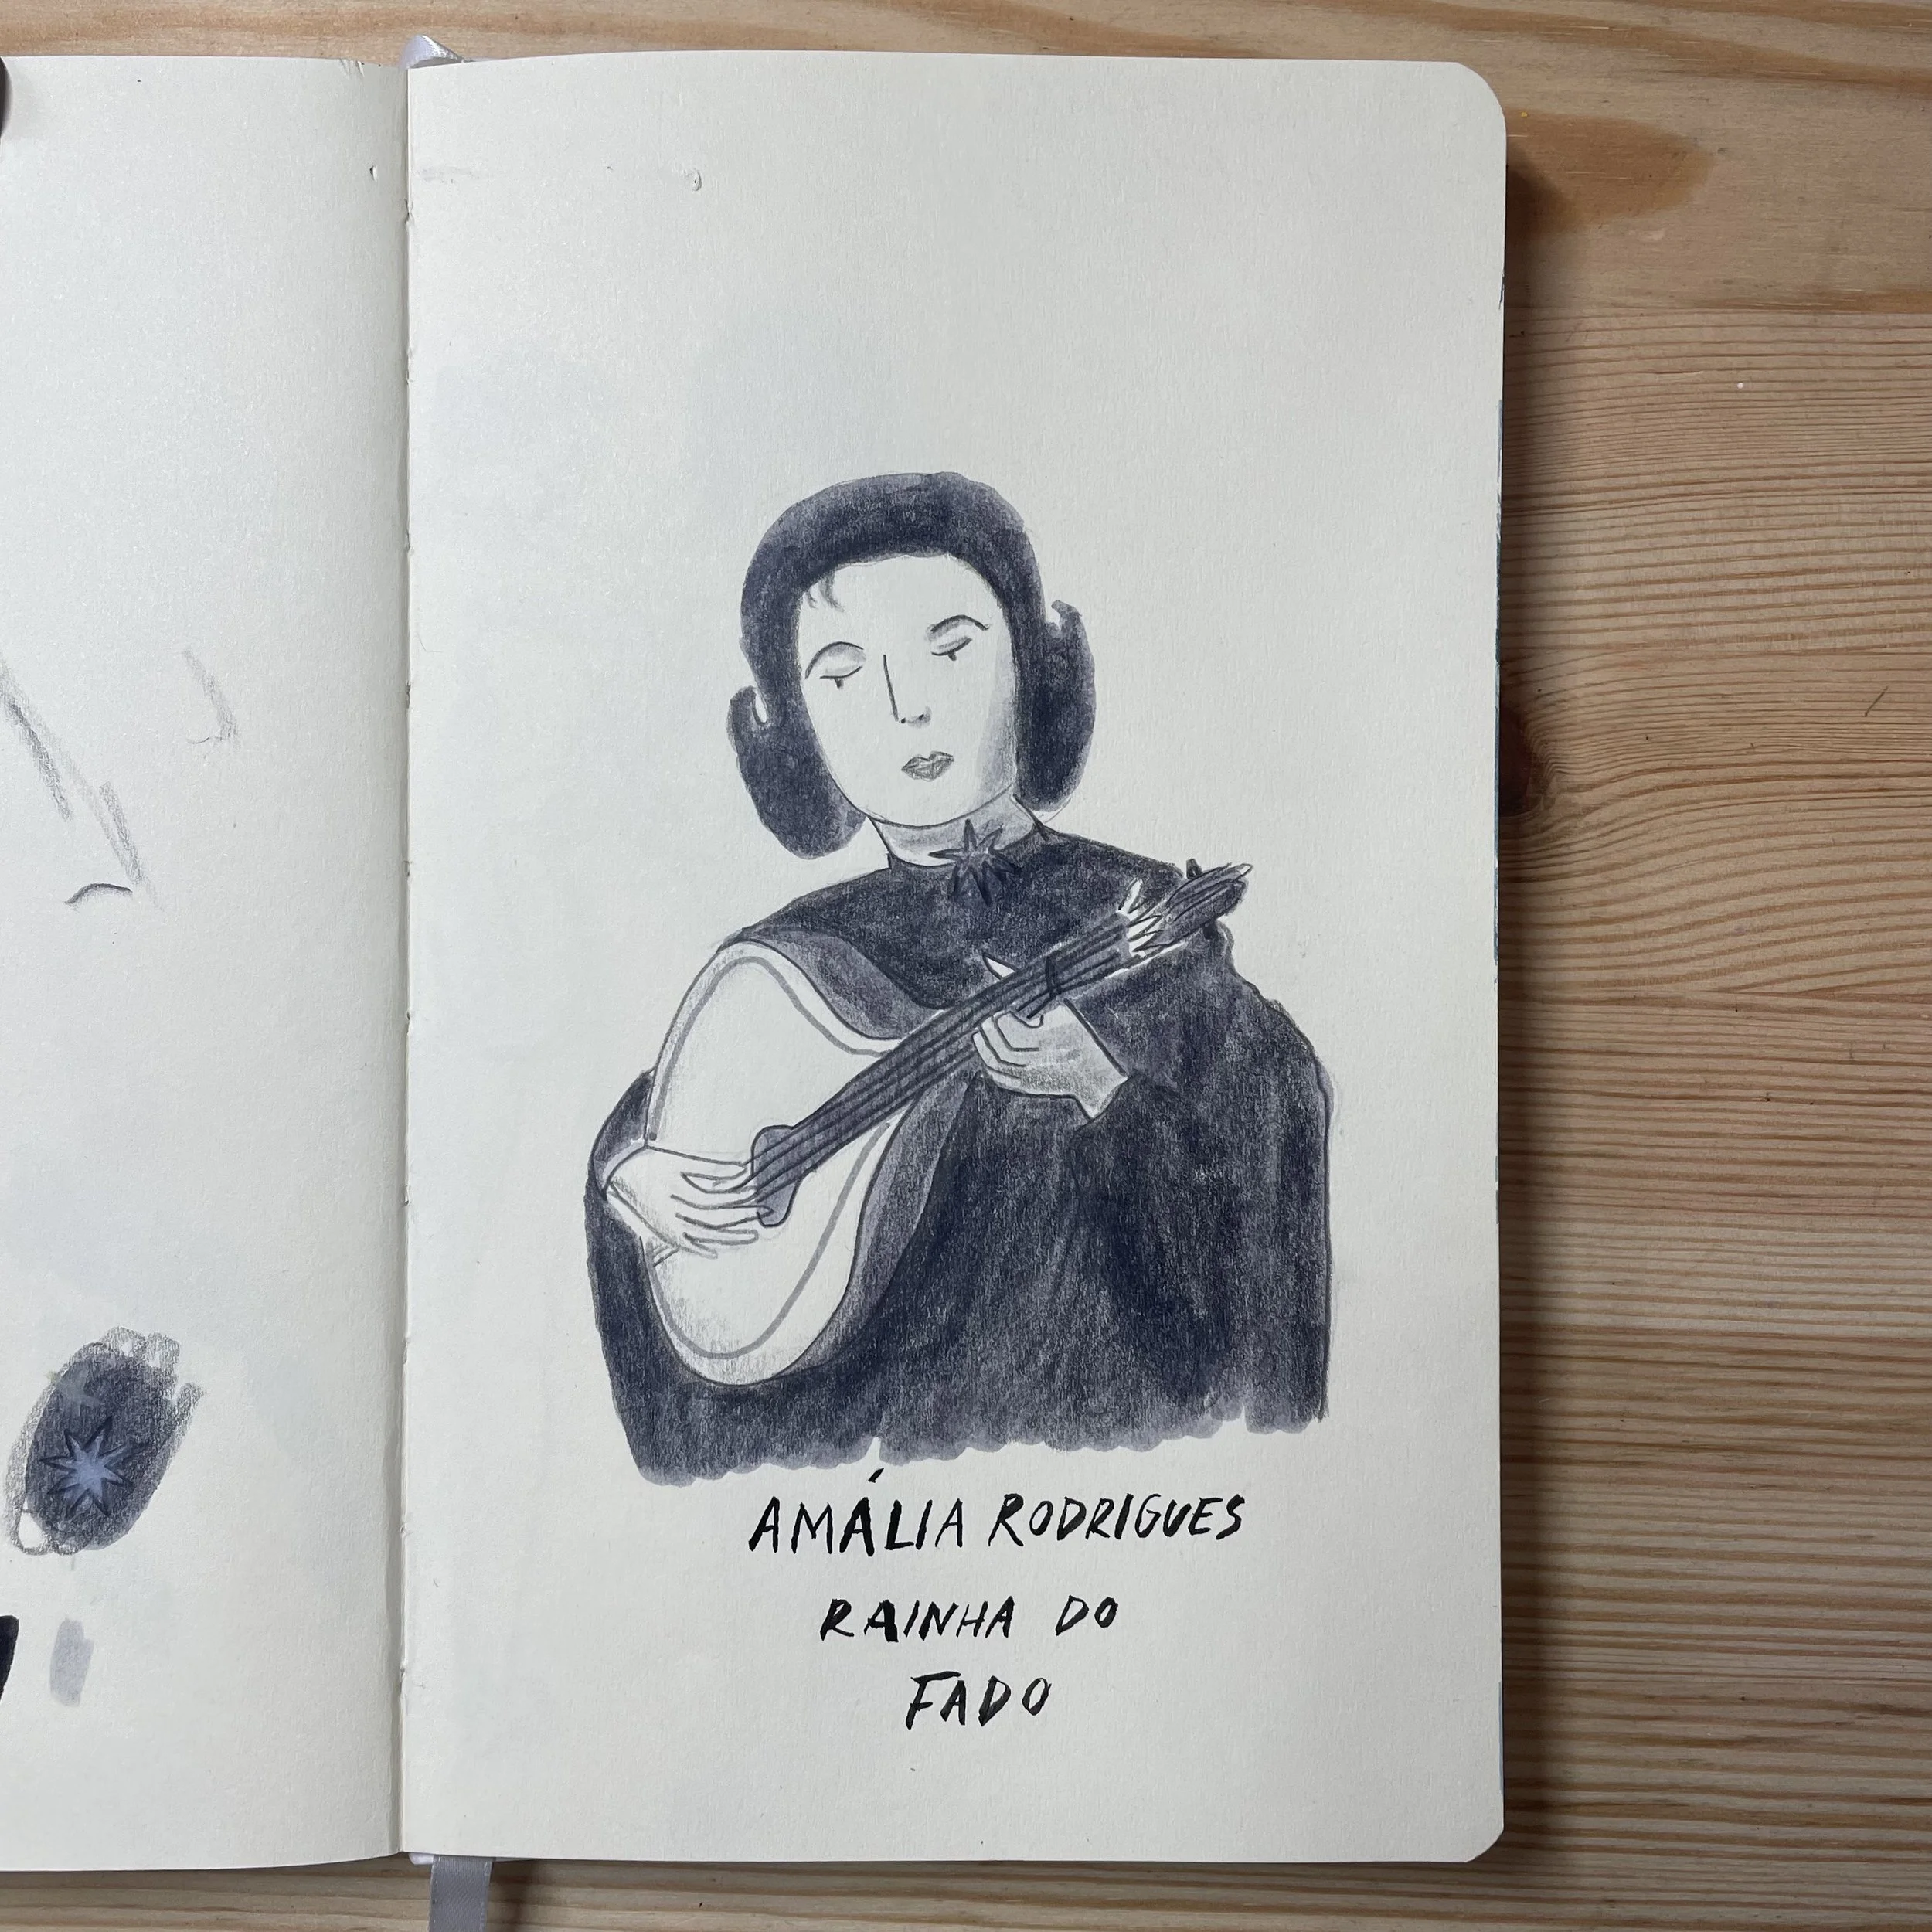 AMÁLIA RODRIGUES
RAINHA DO
FADO